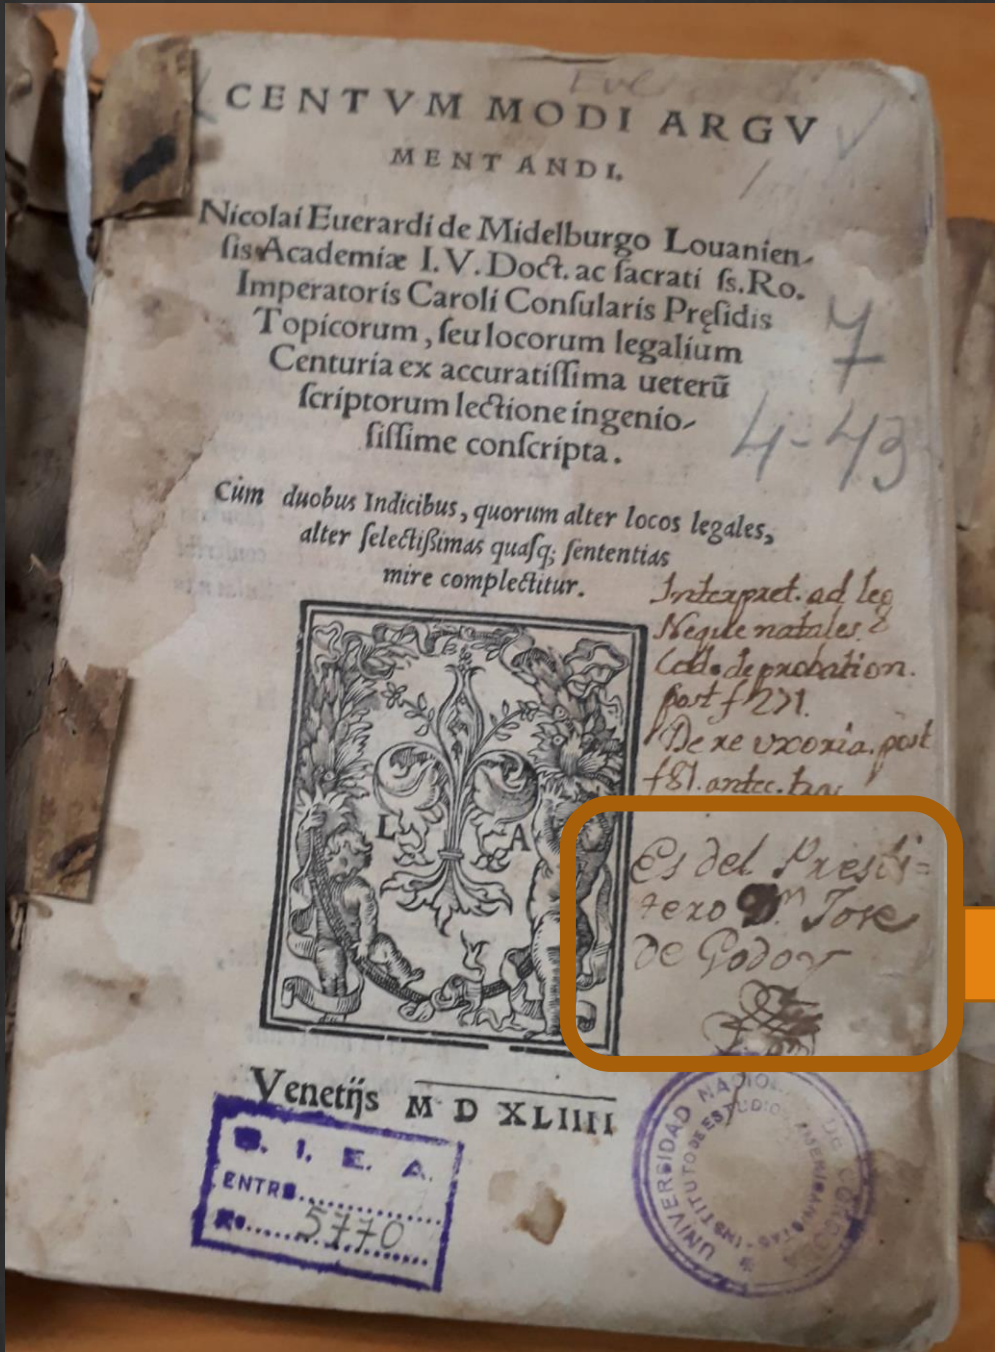 CENTVM MODI ARGV
MENTANDI.
Nicolai Euerardi de Midelburgo Louanien-
sis Academiæ I. V. Doct. ac sacrati ss. Ro.
Imperatoris Caroli Consularis Pręsidis
Topicorum, seu locorum legalium
Centuria ex accuratissima ueterū
scriptorum lectione ingenio-
sissime conscripta.
7
4-43
Cùm duobus Indicibus, quorum alter locos legales,
alter selectißimas quasq; sententias
mire complectitur.
Interpret. ad leg
Neque natales
Cod. de probation.
post f 271.
De re uxoria. post
f 81. antec.
L A
Es del Presbi=
tero Dn Jose
de Godoy
Venetijs M D XLIIII
B. I. E. A.
ENTRE.....................
No......5770
UNIVERSIDAD NACIONAL DE CORDOBA
INSTITUTO DE ESTUDIOS AMERICANISTAS